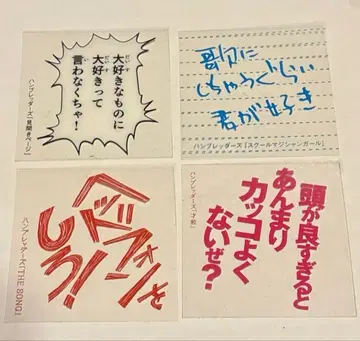 だいす
大好きなものに
だいす
大好きって
い
言わなくちゃ!
ハンブレッダーズ「見開きページ」
歌に
しちゃうぐらい
君が好き
ハンブレッダーズ「スクールマジシャンガール」
ヘッドフォンを
しろ!
ハンブレッダーズ「THE SONG」
頭が良すぎると
あんまり
カッコよく
ないぜ?
ハンブレッダーズ「才能」